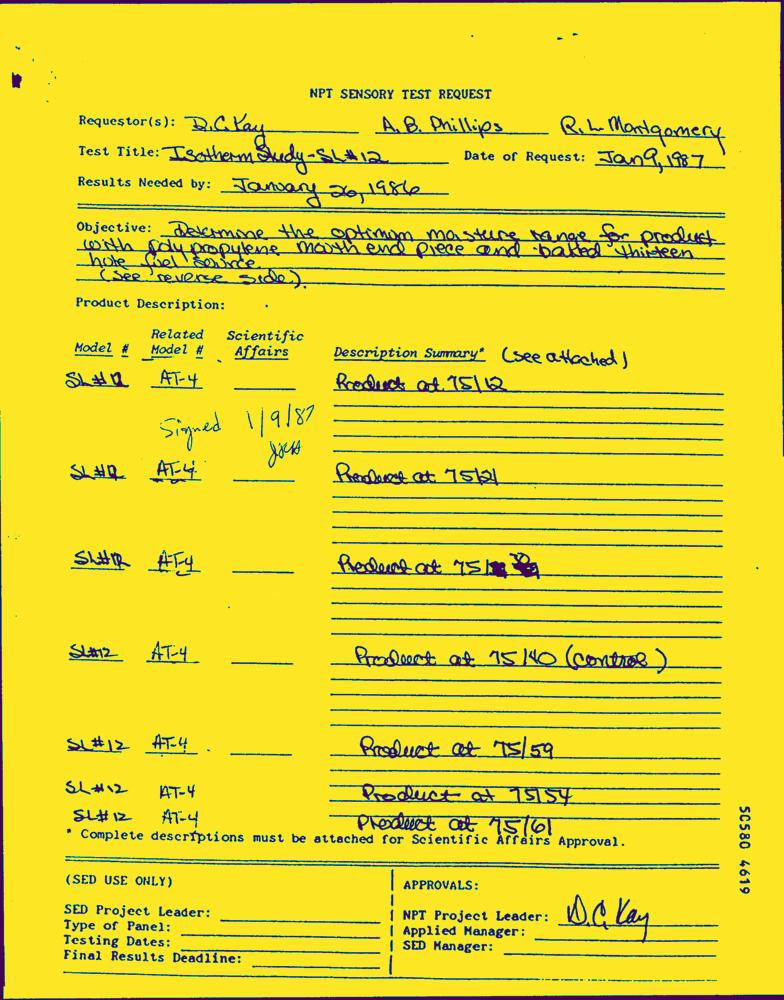 NPT SENSORY TEST REQUEST
Requestor(s): D.C. Kay A.B. Phillips R.L. Montgomery
Test Title: Isotherm Study-SL#12 Date of Request: Jan 9, 1987
Results Needed by: January 26, 1986
Objective: Determine the optimum moisture range for product
with polypropylene mouth end piece and baked thirteen
hole fuel source.
(See reverse side).
Product Description:
Related Scientific
Model # Model # Affairs Description Summary* (see attached)
SL#12 AT-4 Product at 75/12
Signed 1/9/87
SL#12 AT-4 Product at 75/21
SL#12 AT-4 Product at 75/
SL#12 AT-4 Product at 75/40 (control)
SL#12 AT-4 Product at 75/59
SL#12 AT-4 Product at 75/54
SL#12 AT-4 Product at 75/61
* Complete descriptions must be attached for Scientific Affairs Approval.
(SED USE ONLY) APPROVALS:
SED Project Leader: NPT Project Leader: D.C. Kay
Type of Panel: Applied Manager:
Testing Dates: SED Manager:
Final Results Deadline:
50580 4619